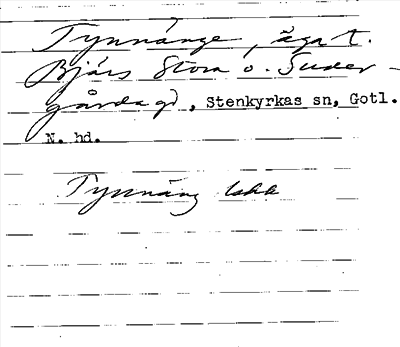 Tynnänge, äga t.
Bjärs Stora o. Suder-
gårda gd, Stenkyrkas sn, Gotl.
N. hd.
Tynnäng